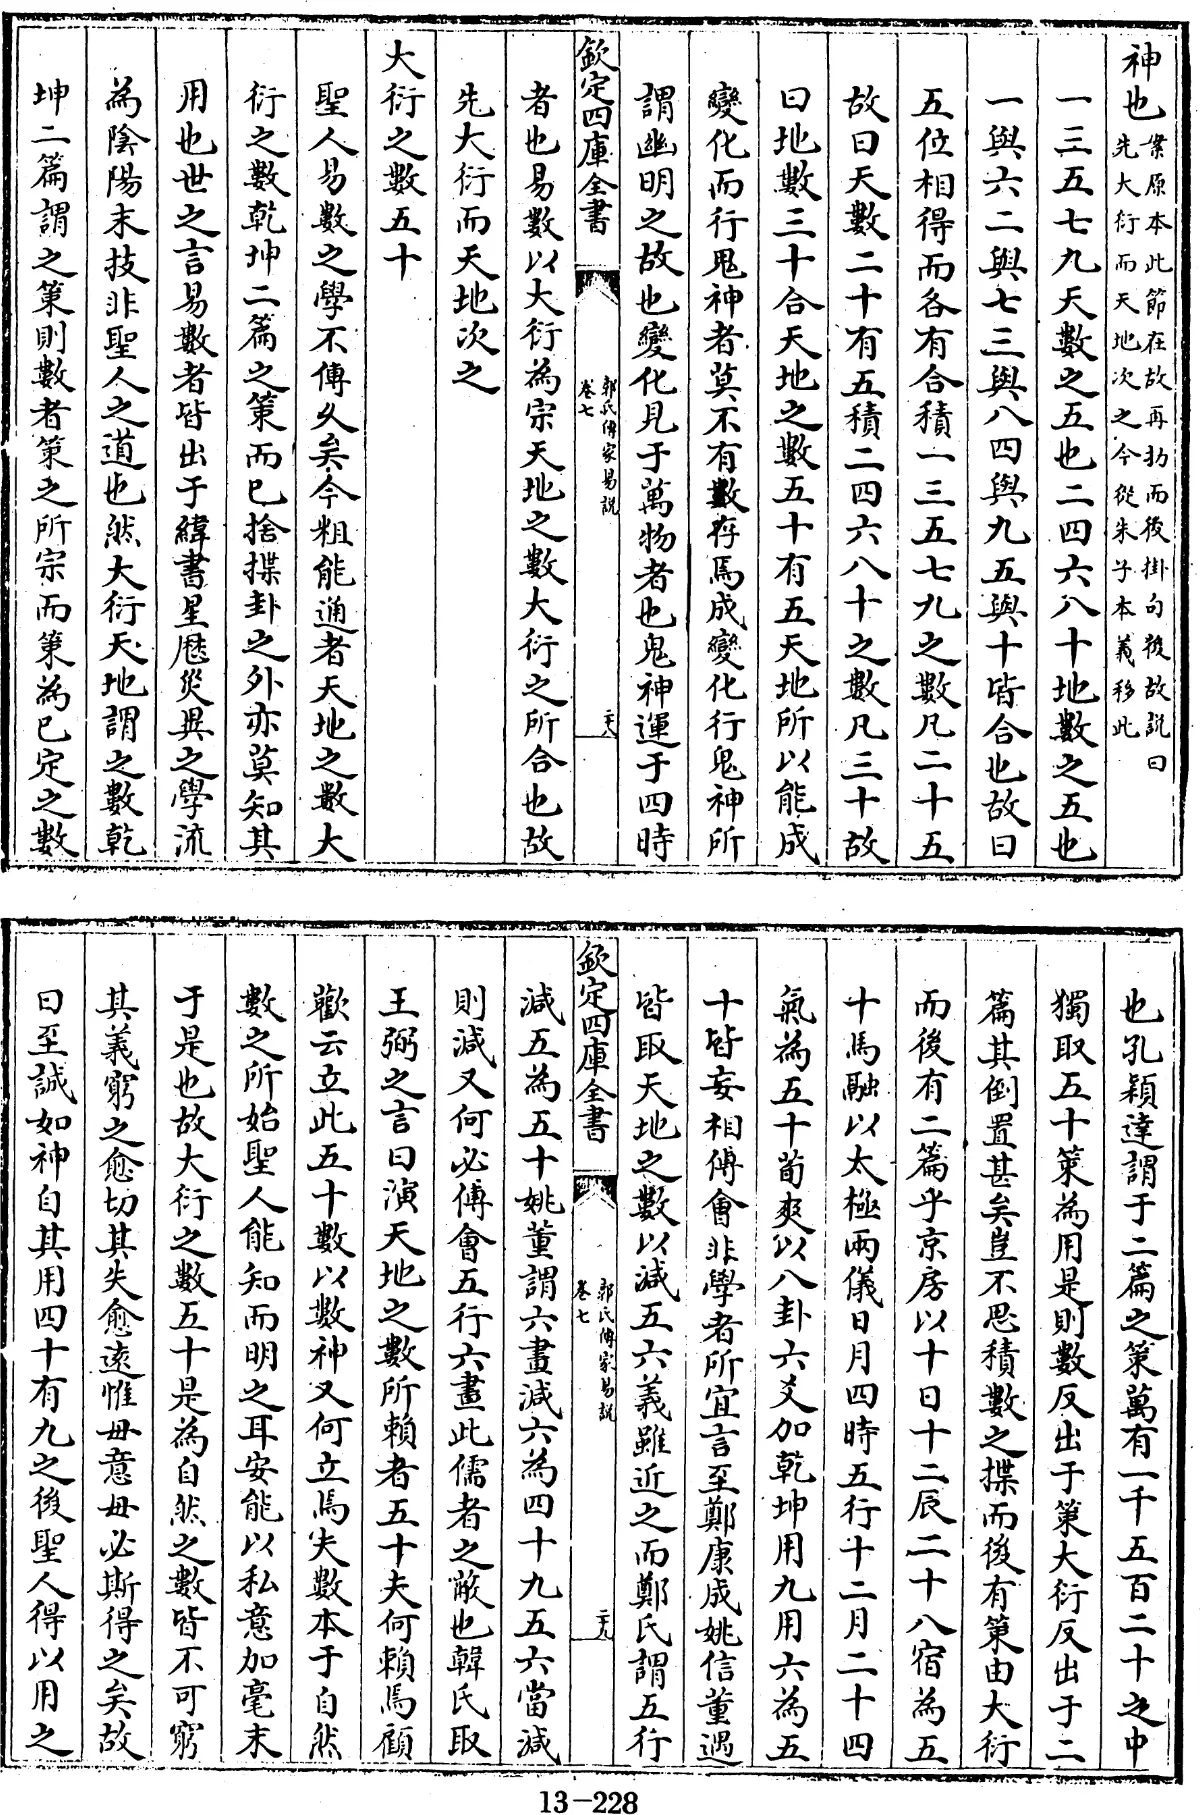 神也案原本此節在故再扐而後掛句後故說曰
先大衍而天地次之今從朱子本義移此
一三五七九天數之五也二四六八十地數之五也
一與六二與七三與八四與九五與十皆合也故曰
五位相得而各有合積一三五七九之數凡二十五
故曰天數二十有五積二四六八十之數凡三十故
曰地數三十合天地之數五十有五天地所以能成
變化而行鬼神者莫不有數存焉成變化行鬼神所
謂幽明之故也變化見于萬物者也鬼神運于四時
欽定四庫全書
郭氏傳家易說
卷七
二十八
者也易數以大衍為宗天地之數大衍之所合也故
先大衍而天地次之
大衍之數五十
聖人易數之學不傳久矣今粗能通者天地之數大
衍之數乾坤二篇之策而已捨揲卦之外亦莫知其
用也世之言易數者皆出于緯書星厯災異之學流
為陰陽末技非聖人之道也然大衍天地謂之數乾
坤二篇謂之策則數者策之所宗而策為已定之數
也孔穎達謂于二篇之策萬有一千五百二十之中
獨取五十策為用是則數反出于策大衍反出于二
篇其倒置甚矣豈不思積數之揲而後有策由大衍
而後有二篇乎京房以十日十二辰二十八宿為五
十馬融以太極兩儀日月四時五行十二月二十四
氣為五十荀爽以八卦六爻加乾坤用九用六為五
十皆妄相傅會非學者所宜言至鄭康成姚信董遇
皆取天地之數以減五六義雖近之而鄭氏謂五行
欽定四庫全書
郭氏傳家易說
卷七
二十九
減五為五十姚董謂六畫減六為四十九五六當減
則減又何必傅會五行六畫此儒者之敝也韓氏取
王弼之言曰演天地之數所賴者五十夫何賴焉顧
歡云立此五十數以數神又何立焉夫數本于自然
數之所始聖人能知而明之耳安能以私意加毫末
于是也故大衍之數五十是為自然之數皆不可窮
其義窮之愈切其失愈遠惟毋意毋必斯得之矣故
曰至誠如神自其用四十有九之後聖人得以用之
13-228